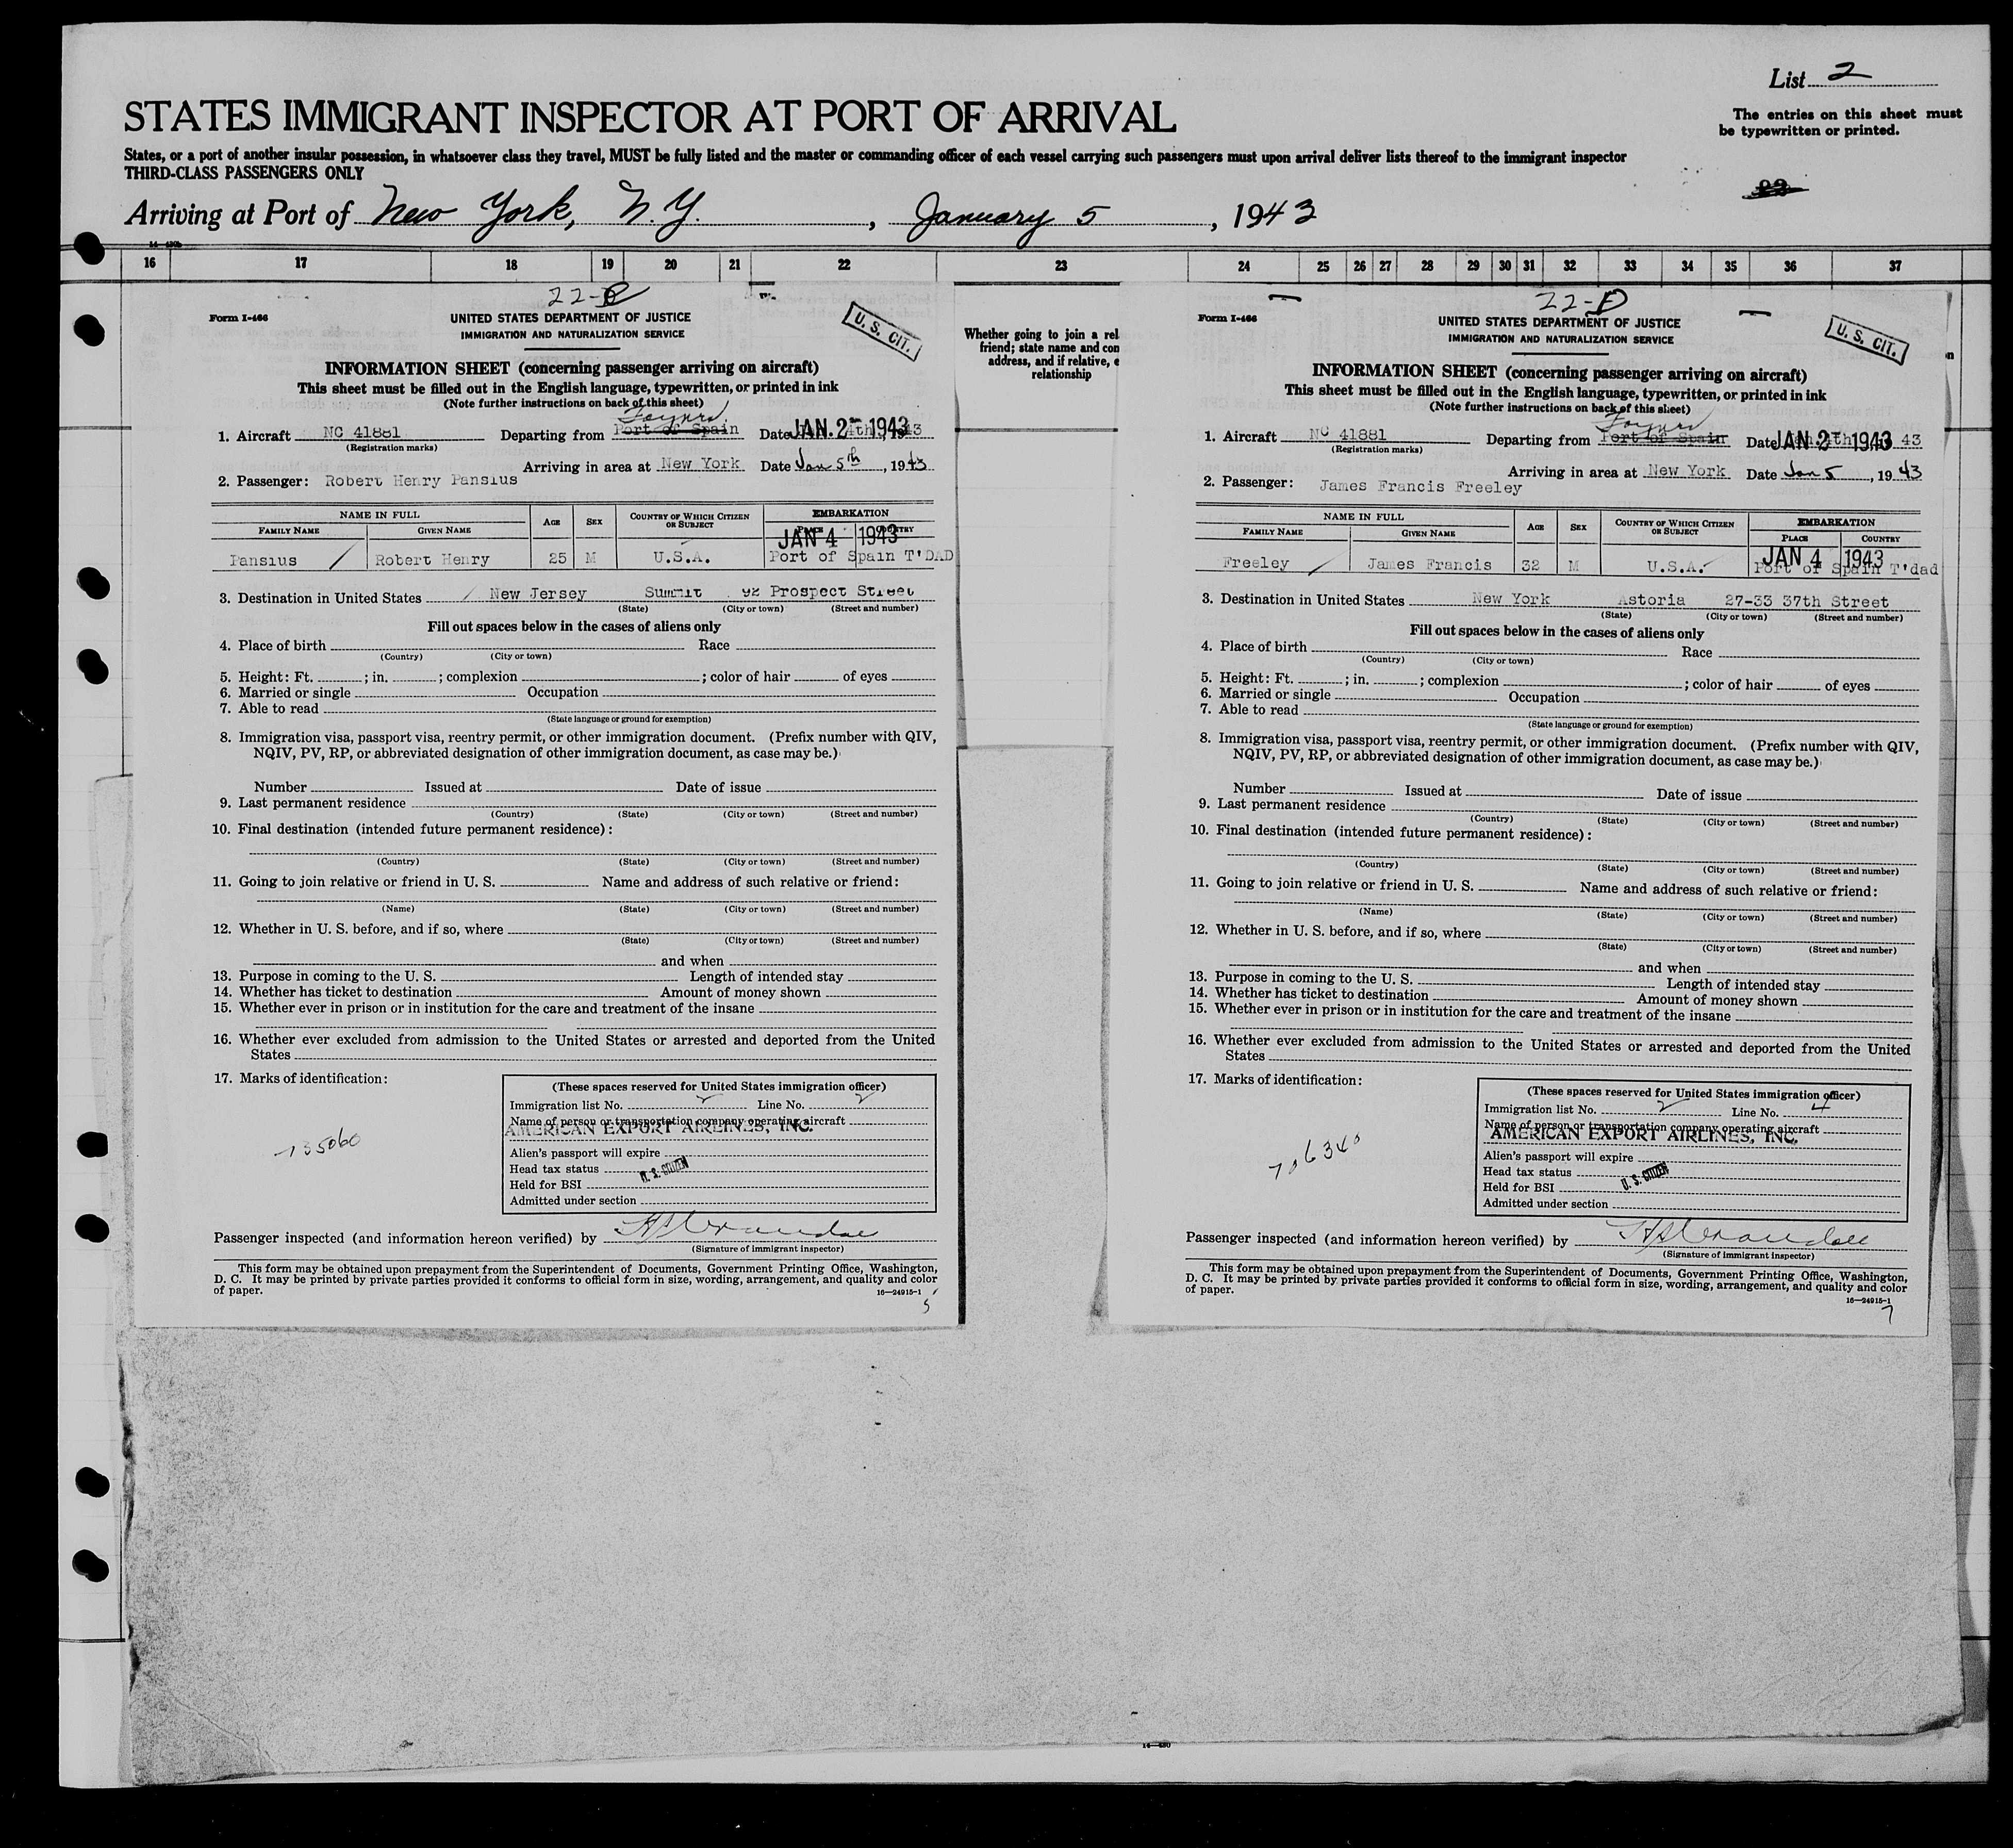 List 2
STATES IMMIGRANT INSPECTOR AT PORT OF ARRIVAL
The entries on this sheet must
be typewritten or printed.
States, or a port of another insular possession, in whatsoever class they travel, MUST be fully listed and the master or commanding officer of each vessel carrying such passengers must upon arrival deliver lists thereof to the immigrant inspector
THIRD-CLASS PASSENGERS ONLY
Arriving at Port of New York, N.Y., January 5, 1943
16 17 18 19 20 21 22 23 24 25 26 27 28 29 30 31 32 33 34 35 36 37
22-
Form I-466
UNITED STATES DEPARTMENT OF JUSTICE
IMMIGRATION AND NATURALIZATION SERVICE
U. S. CIT.
INFORMATION SHEET (concerning passenger arriving on aircraft)
This sheet must be filled out in the English language, typewritten, or printed in ink
(Note further instructions on back of this sheet)
Foynes
1. Aircraft NC 41881 Departing from Port of Spain Date JAN. 2 1943
(Registration marks)
Arriving in area at New York Date Jan 5th, 1943
2. Passenger: Robert Henry Pansius
NAME IN FULL AGE SEX COUNTRY OF WHICH CITIZEN OR SUBJECT EMBARKATION
FAMILY NAME GIVEN NAME PLACE COUNTRY
JAN 4 1943
Pansius Robert Henry 25 M U.S.A. Port of Spain T'DAD
3. Destination in United States New Jersey Summit 92 Prospect Street
(State) (City or town) (Street and number)
Fill out spaces below in the cases of aliens only
4. Place of birth Race
(Country) (City or town)
5. Height: Ft. ; in. ; complexion ; color of hair of eyes
6. Married or single Occupation
7. Able to read
(State language or ground for exemption)
8. Immigration visa, passport visa, reentry permit, or other immigration document. (Prefix number with QIV,
NQIV, PV, RP, or abbreviated designation of other immigration document, as case may be.)
Number Issued at Date of issue
9. Last permanent residence
(Country) (State) (City or town) (Street and number)
10. Final destination (intended future permanent residence):
(Country) (State) (City or town) (Street and number)
11. Going to join relative or friend in U. S. Name and address of such relative or friend:
(Name) (State) (City or town) (Street and number)
12. Whether in U. S. before, and if so, where
(State) (City or town) (Street and number)
and when
13. Purpose in coming to the U. S. Length of intended stay
14. Whether has ticket to destination Amount of money shown
15. Whether ever in prison or in institution for the care and treatment of the insane
16. Whether ever excluded from admission to the United States or arrested and deported from the United
States
17. Marks of identification:
(These spaces reserved for United States immigration officer)
Immigration list No. 2 Line No. 2
Name of person or transportation company operating aircraft
AMERICAN EXPORT AIRLINES, INC.
Alien's passport will expire
Head tax status U. S. CITIZEN
Held for BSI
Admitted under section
Passenger inspected (and information hereon verified) by
(Signature of immigrant inspector)
This form may be obtained upon prepayment from the Superintendent of Documents, Government Printing Office, Washington,
D. C. It may be printed by private parties provided it conforms to official form in size, wording, arrangement, and quality and color
of paper.
16—24915-1
Whether going to join a rel
friend; state name and con
address, and if relative, e
relationship
22-D
Form I-466
UNITED STATES DEPARTMENT OF JUSTICE
IMMIGRATION AND NATURALIZATION SERVICE
U. S. CIT.
INFORMATION SHEET (concerning passenger arriving on aircraft)
This sheet must be filled out in the English language, typewritten, or printed in ink
(Note further instructions on back of this sheet)
Foynes
1. Aircraft NC 41881 Departing from Port of Spain Date JAN 2 1943 43
(Registration marks)
Arriving in area at New York Date Jan 5, 1943
2. Passenger: James Francis Freeley
NAME IN FULL AGE SEX COUNTRY OF WHICH CITIZEN OR SUBJECT EMBARKATION
FAMILY NAME GIVEN NAME PLACE COUNTRY
JAN 4 1943
Freeley James Francis 32 M U.S.A. Port of Spain T'dad
3. Destination in United States New York Astoria 27-33 37th Street
(State) (City or town) (Street and number)
Fill out spaces below in the cases of aliens only
4. Place of birth Race
(Country) (City or town)
5. Height: Ft. ; in. ; complexion ; color of hair of eyes
6. Married or single Occupation
7. Able to read
(State language or ground for exemption)
8. Immigration visa, passport visa, reentry permit, or other immigration document. (Prefix number with QIV,
NQIV, PV, RP, or abbreviated designation of other immigration document, as case may be.)
Number Issued at Date of issue
9. Last permanent residence
(Country) (State) (City or town) (Street and number)
10. Final destination (intended future permanent residence):
(Country) (State) (City or town) (Street and number)
11. Going to join relative or friend in U. S. Name and address of such relative or friend:
(Name) (State) (City or town) (Street and number)
12. Whether in U. S. before, and if so, where
(State) (City or town) (Street and number)
and when
13. Purpose in coming to the U. S. Length of intended stay
14. Whether has ticket to destination Amount of money shown
15. Whether ever in prison or in institution for the care and treatment of the insane
16. Whether ever excluded from admission to the United States or arrested and deported from the United
States
17. Marks of identification:
(These spaces reserved for United States immigration officer)
Immigration list No. 2 Line No. 4
Name of person or transportation company operating aircraft
AMERICAN EXPORT AIRLINES, INC.
Alien's passport will expire
Head tax status U. S. CITIZEN
Held for BSI
Admitted under section
706340
Passenger inspected (and information hereon verified) by
(Signature of immigrant inspector)
This form may be obtained upon prepayment from the Superintendent of Documents, Government Printing Office, Washington,
D. C. It may be printed by private parties provided it conforms to official form in size, wording, arrangement, and quality and color
of paper.
16—24915-1
7